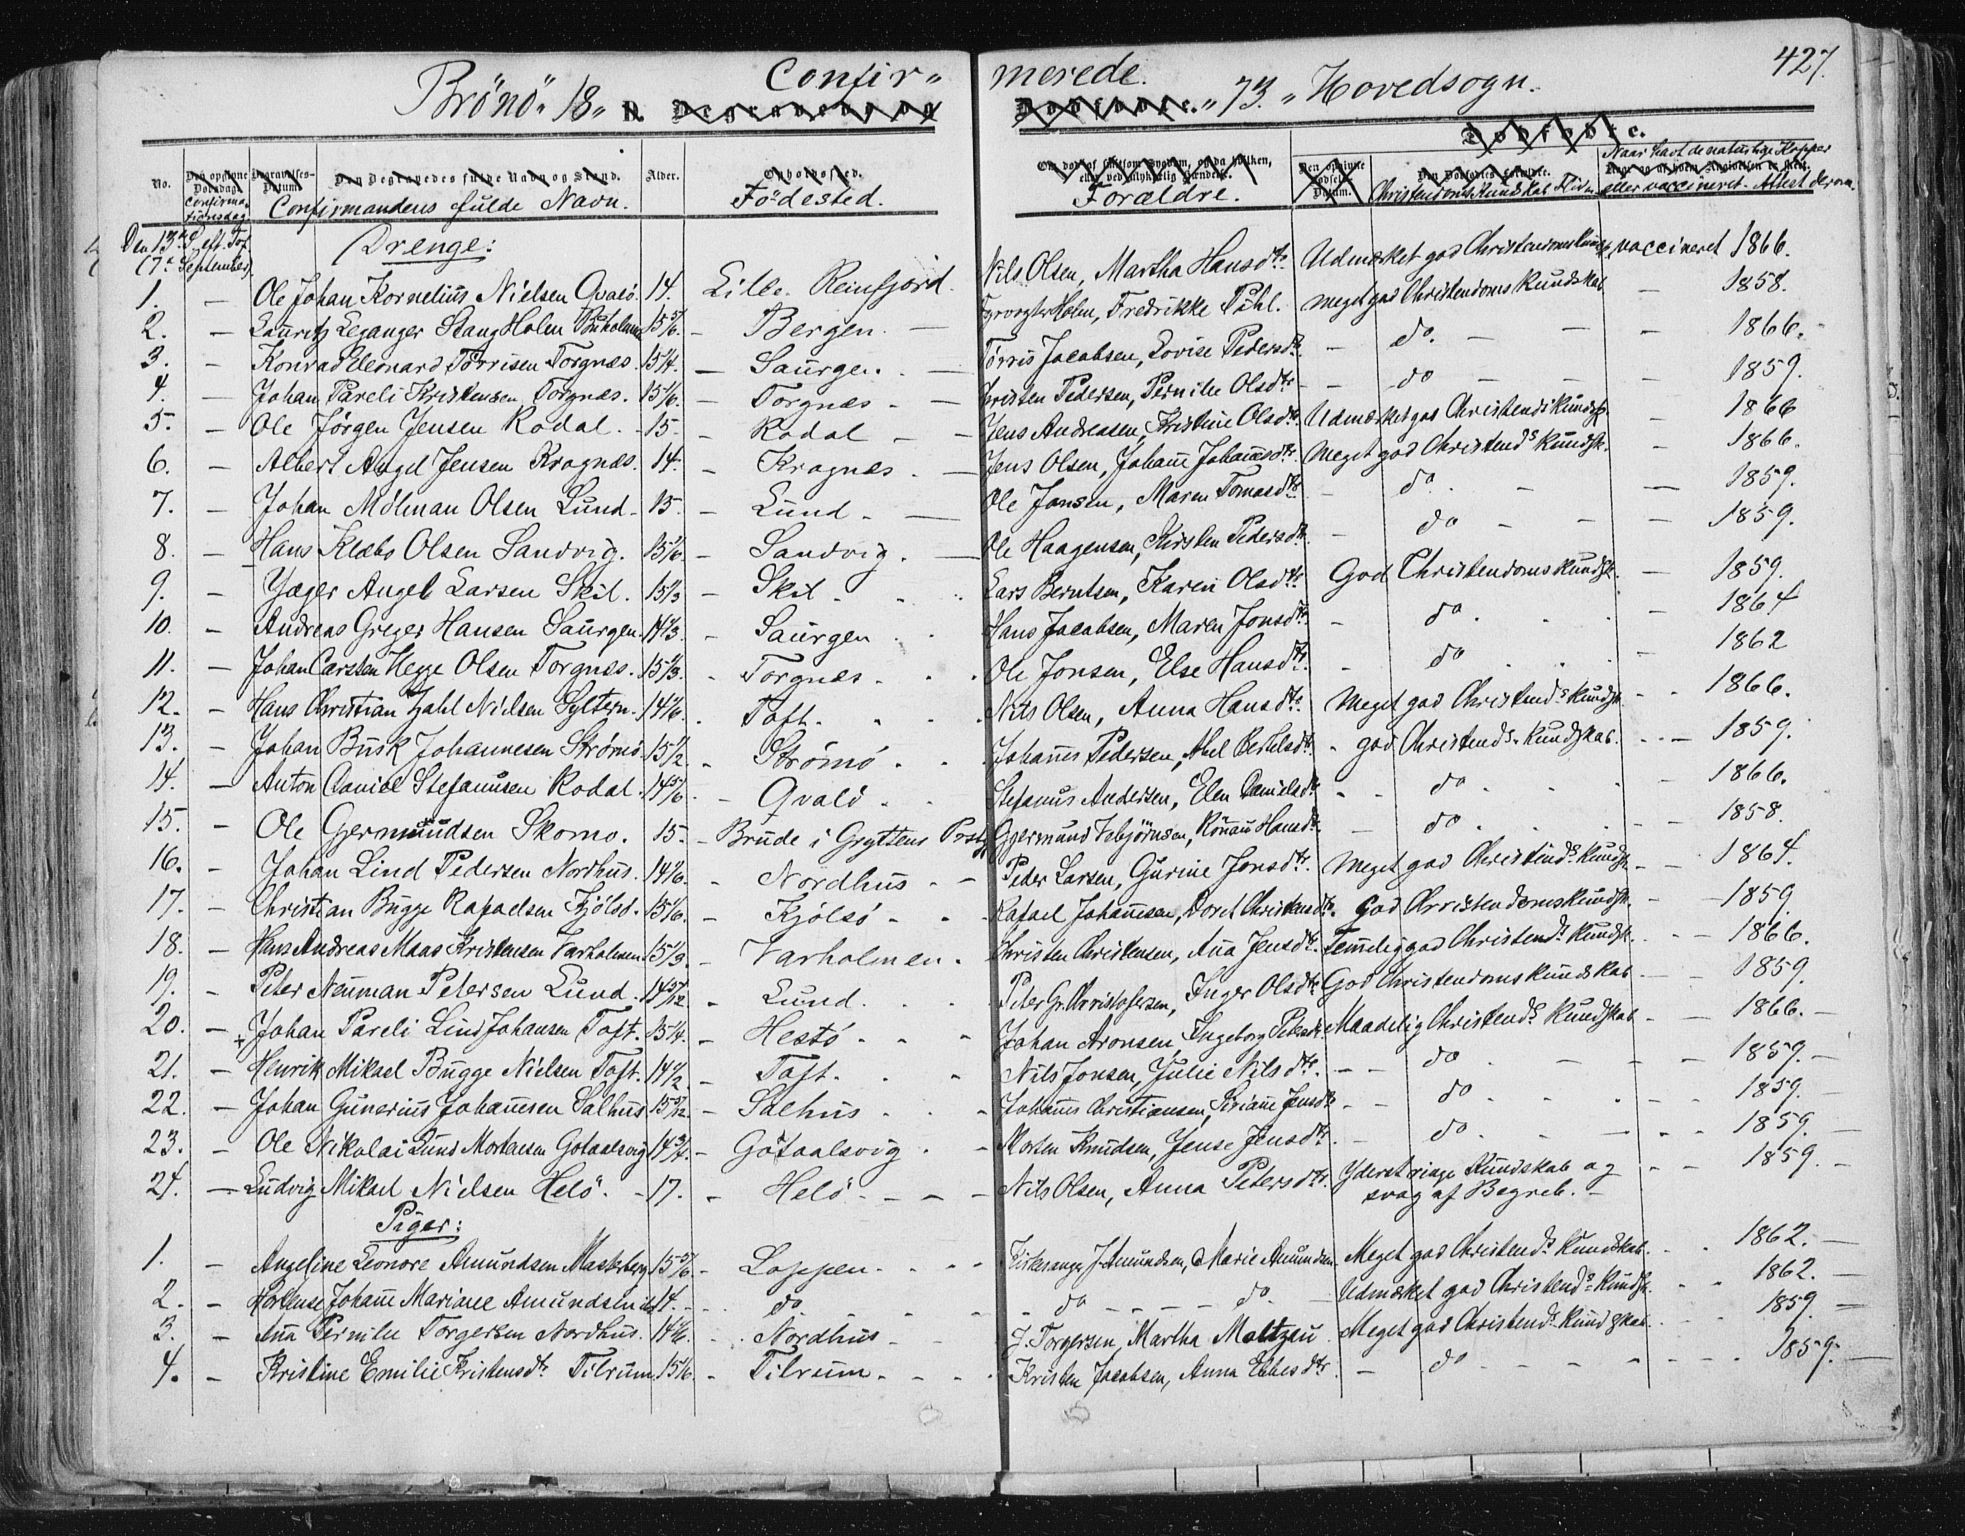 427.
Confirmerede.
Brönö 18 73. Hovedsogn.
No. Confirmationsdag Confirmandens fulde Navn. Alder. Födested. Forældre. Christendoms Kundskab Flid Naar havt de naturlige Kopper eller vaccineret. Attest derom.
Den 13de S. eft. Tref.
(7de September).
Drenge:
1. – Ole Johan Kornelius Nielsen Qvalö. 14. Lille Reinfjord. Nils Olsen, Martha Hansdtr. Udmærket god Christendomskundsk. vaccineret 1866.
2. – Lauritz Leganger Stang Holm 15 5/6. – Bergen. – Fyrvogter Holm, Fredrikke Pihl. Meget god Christendoms Kundskab – 1858.
3. – Konrad Eleonard Törrisen Torgnæs. 15 1/4. – Saurgen. – Törris Jacobsen, Lovise Pedersdtr. – do. – 1866.
4. – Johan Pareli Kristensen Torgnæs. 15 1/6. – Torgnæs – Kristen Pedersen, Pernille Olsdtr – do – 1859.
5. – Ole Jörgen Jensen Rodal. – 15 – Rodal – Jens Andreasen, Kristine Olsdtr. Udmærket god Christendskundsk. – 1866
6. – Albert Angel Jensen Kragnæs. 14. – Kragnæs. – Jens Olsen, Johane Johansdtr. Meget god Christends Kundsk. – 1866.
7. – Johan Mölman Olsen Lund – 15. – Lund – Ole Jonsen, Maren Tomasdtr. – do. – 1859.
8. – Hans Klæbo Olsen Sandvig. 15 1/6. – Sandvig. – Ole Haagensen, Kirsten Pedersdtr. – do – 1859.
9. – Jæger Angel Larsen Skil. 15 1/3 – Skil. Lars Berntsen, Karen Olsdtr. God Christendoms kundsk. – 1859.
10. – Andreas Greger Hansen Saurgen. 14 1/3. – Saurgen Hans Jacobsen, Maren Jonsdtr. – do – 1864
11. – Johan Carsten Hegge Olsen Torgnæs. 15 1/3. – Torgnæs. Ole Jonsen, Else Hansdtr. – do – 1862
12. – Hans Christian Zahl Nielsen Syltern. 14 1/6. Toft. Nils Olsen, Anna Hansdtr. Meget god Christends kundsk. – 1866.
13. – Johan Busk Johannesen Strömö. 15 1/2. Strömö. Johanes Pedersen, Abel Bertelsdtr. god Christends. Kundskab. – 1859.
14. – Anton Daniel Stefanusen Rodal. 14 5/6. – Qvalö. Stefanus Andersen, Elen Danielsdtr. – do – 1866.
15. – Ole Gjermundsen Skomo. 15. – Brude i Gryttens Prstg. Gjermund Isbjörnsen, Hansdtr. – do. 1858.
16. – Johan Lind Pedersen Nordhus. 14 1/6. – Nordhus – Peder Larsen, Gurine Jonsdtr. Meget god Christends Kundsk. – 1864.
17. – Christian Bugge Rafaelsen Kjölsö. 15 1/6. – Kjölsö – Rafael Johanesen, Doret Christensdtr. God Christendomskundsk. – 1859
18. – Hans Andreas Maas Kristensen Varholmen. 15 1/3. – Varholmen. Christen Christensen, Ana Jensdtr. Temelig god Christends Kundsk. – 1866.
19. – Peter Neuman Petersen Lund. 14 – Lund. Peter Gr. Christofersen, Inger Olsdtr. God Christendomskundskab – 1859.
20. – Johan Pareli Lind Johansen Toft. 15 1/4. – Hestö. Johan Aronsen, Ingeborg Petersdtr. Maadelig Christends Kundskab – 1866. –
21. – Henrik Mikael Bugge Nielsen Toft. 14 1/2 – Toft. Nils Jonsen, Julie Nilsdtr. – do – 1859. –
22. – Johan Gunerius Johanesen Salhus 15 – Salhus. Johanes Christiansen, Jensdtr. – do – 1859. –
23. – Ole Nikolai Lund Mortensen Götaalsvig 14 3/4. – Götaalsvig. Morten Knudsen, Jense Jensdtr. – do. – 1859. –
24. – Ludvig Mikael Nielsen Helö. – 17. – Helö. – Nils Olsen, Anna Petersdtr. Yderst ringe Kundskab og svag af Begreb. – 1859. –
Piger:
1. – Angeline Leonore Amundsen 15 5/6. – Loppen. Kirkesanger J. Amundsen, Marie Amundsen Meget god Christends Kundskab. 1862. –
2. – Hortense Johane Mariane Amundsen 14. do do – do. Udmærket god Christends Kundsk. 1862. –
3. – Ana Pernille Torgersen Nordhus. 14 1/6. Nordhus J. Torgersen, Martha Moltzau Meget god Christends Kundskab. 1859. –
4. – Kristine Emilie Kristensdtr Tilrum. 15 1/6. – Tilrum. Kristen Jacobsen, Anna Ebbesdtr. – do – 1859. –